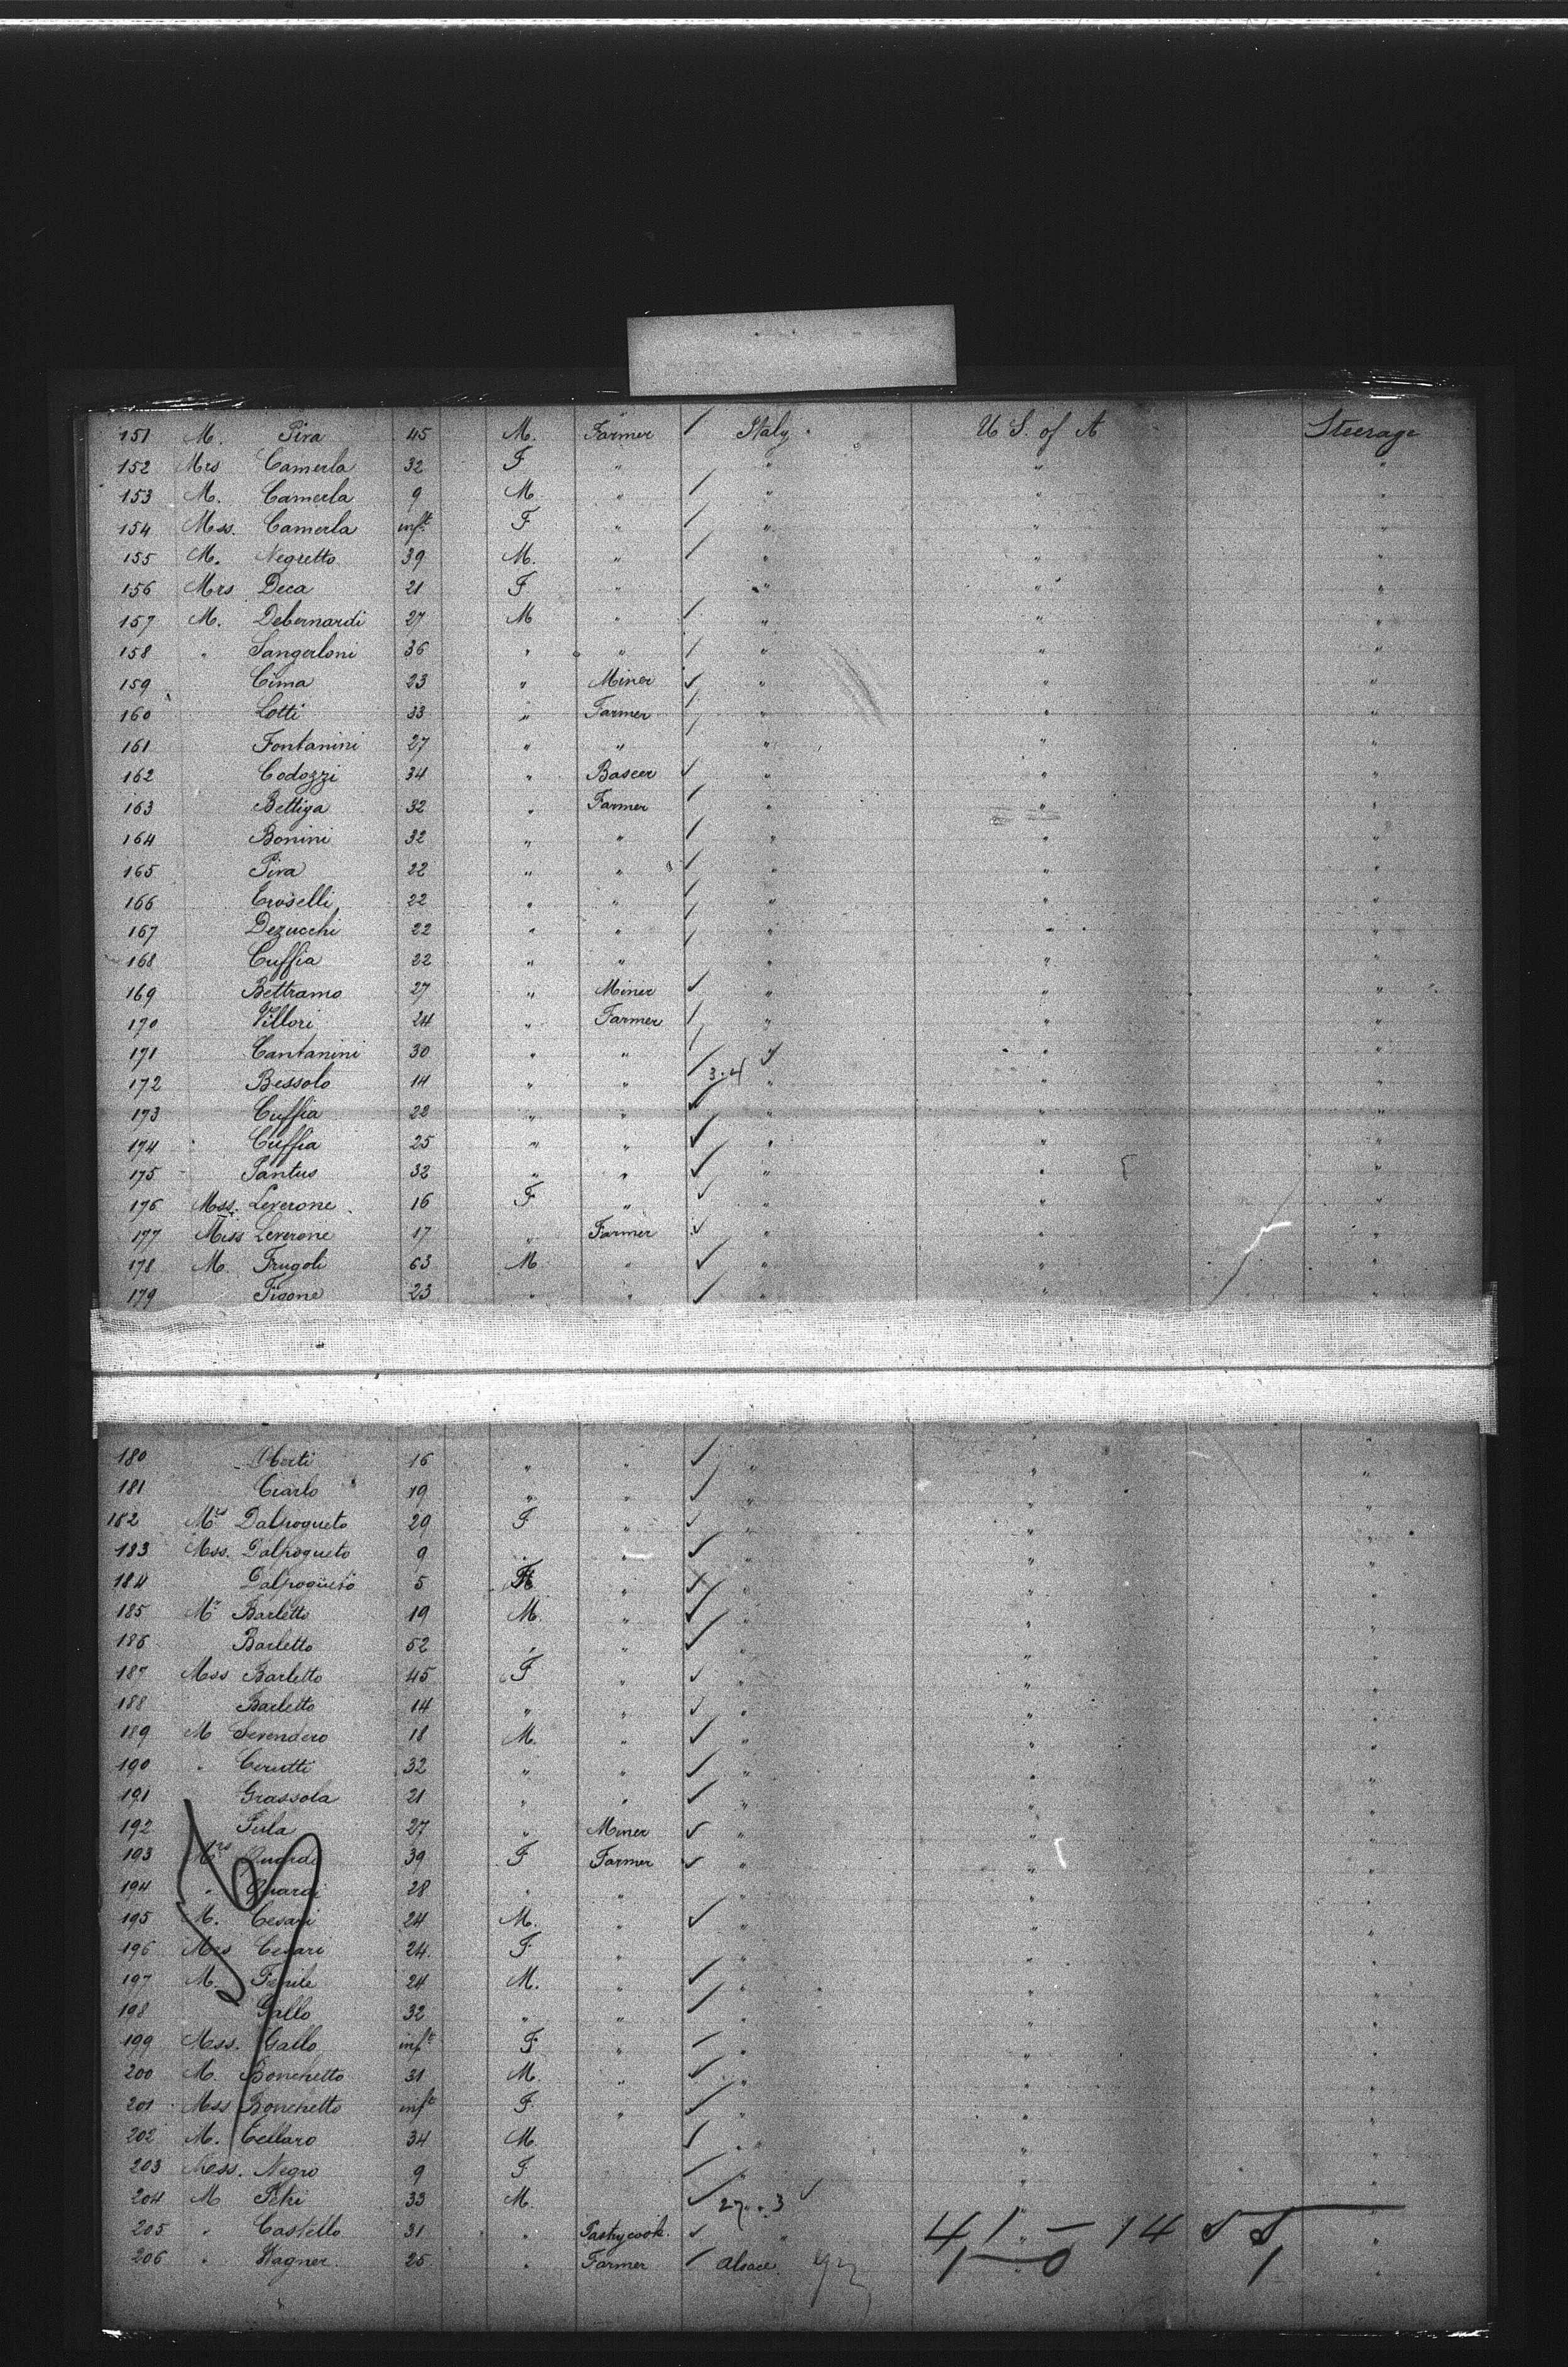 151 M. Piva 45 M. Farmer / Italy . U S. of A Steerage
152 Mrs Camerla 32 F " " " "
153 M. Camerla 9 M " / " " "
154 Mss. Camerla inft F " / " " "
155 M. Negretto 39 M. " / " " "
156 Mrs Deca 21 F " " " "
157 M. Debernardi 27 M " / " " "
158 " Sangerloni 36 " " / " " "
159 Cima 23 " Miner ✓ " " "
160 Lotti 33 " Farmer / " " "
161 Fontanini 27 " " / " " "
162 Codozzi 34 " Baseer ✓ " " "
163 Bettiga 32 " Farmer / " " "
164 Bonini 32 " " / " " "
165 Piva 22 " " / " " "
166 Croselli 22 " " / " " "
167 Dezucchi 22 " " / " " "
168 Cuffia 22 " " / " " "
169 Bettramo 27 " Miner ✓ " " "
170 Villori 24 " Farmer / " " "
171 Cantanini 30 " " / " " "
172 Bessolo 14 " " / 3.4 " " "
173 Cuffia 22 " " ✓ " " "
174 Cuffia 25 " " ✓ " " "
175 Pantus 32 " " ✓ " " "
176 Mss. Leverone 16 F " ✓ " " "
177 Miss Leverone 17 " Farmer ✓ " " "
178 M. Frugoli 63 M " ✓ " " "
179 Figone 23 " " ✓ " " "
180 Oberti 16 " " ✓ " " "
181 Ciarlo 19 " " ✓ " " "
182 Mrs Dalpogueto 29 F " ✓ " " "
183 Mss. Dalpogueto 9 " " ✓ " " "
184 Dalpogueto 5 " ✓ " " "
185 Mr Barletto 19 M. " ✓ " " "
186 Barletto 52 " " ✓ " " "
187 Mss Barletto 45 F " ✓ " " "
188 Barletto 14 " " ✓ " " "
189 M Sevendero 18 M. " ✓ " " "
190 " Cerutti 32 " " ✓ " " "
191 Grassola 21 " " ✓ " " "
192 27 " Miner ✓ " " "
193 Mrs 39 F Farmer ✓ " " "
194 " 28 " " " " "
195 M. Cesari 24 M. " ✓ " " "
196 Mrs Cesari 24 F " " " "
197 M. Fenile 24 M. " ✓ " " "
198 Gallo 32 " " ✓ " " "
199 Mss. Gallo inft F " / " " "
200 M. Bonchetto 31 M. " ✓ " " "
201 Mss Bonchetto inft F " ✓ " " "
202 M. Cellaro 34 M ✓ " " "
203 Mss. Negro 9 F / " " "
204 M Petri 33 M. ✓ 27 . 3 ✓ " "
205 " Castello 31 " Pastrycook. ✓ " 41 - 14 "
206 " Wagner 25 " Farmer / Alsace 1 - 0 1 "